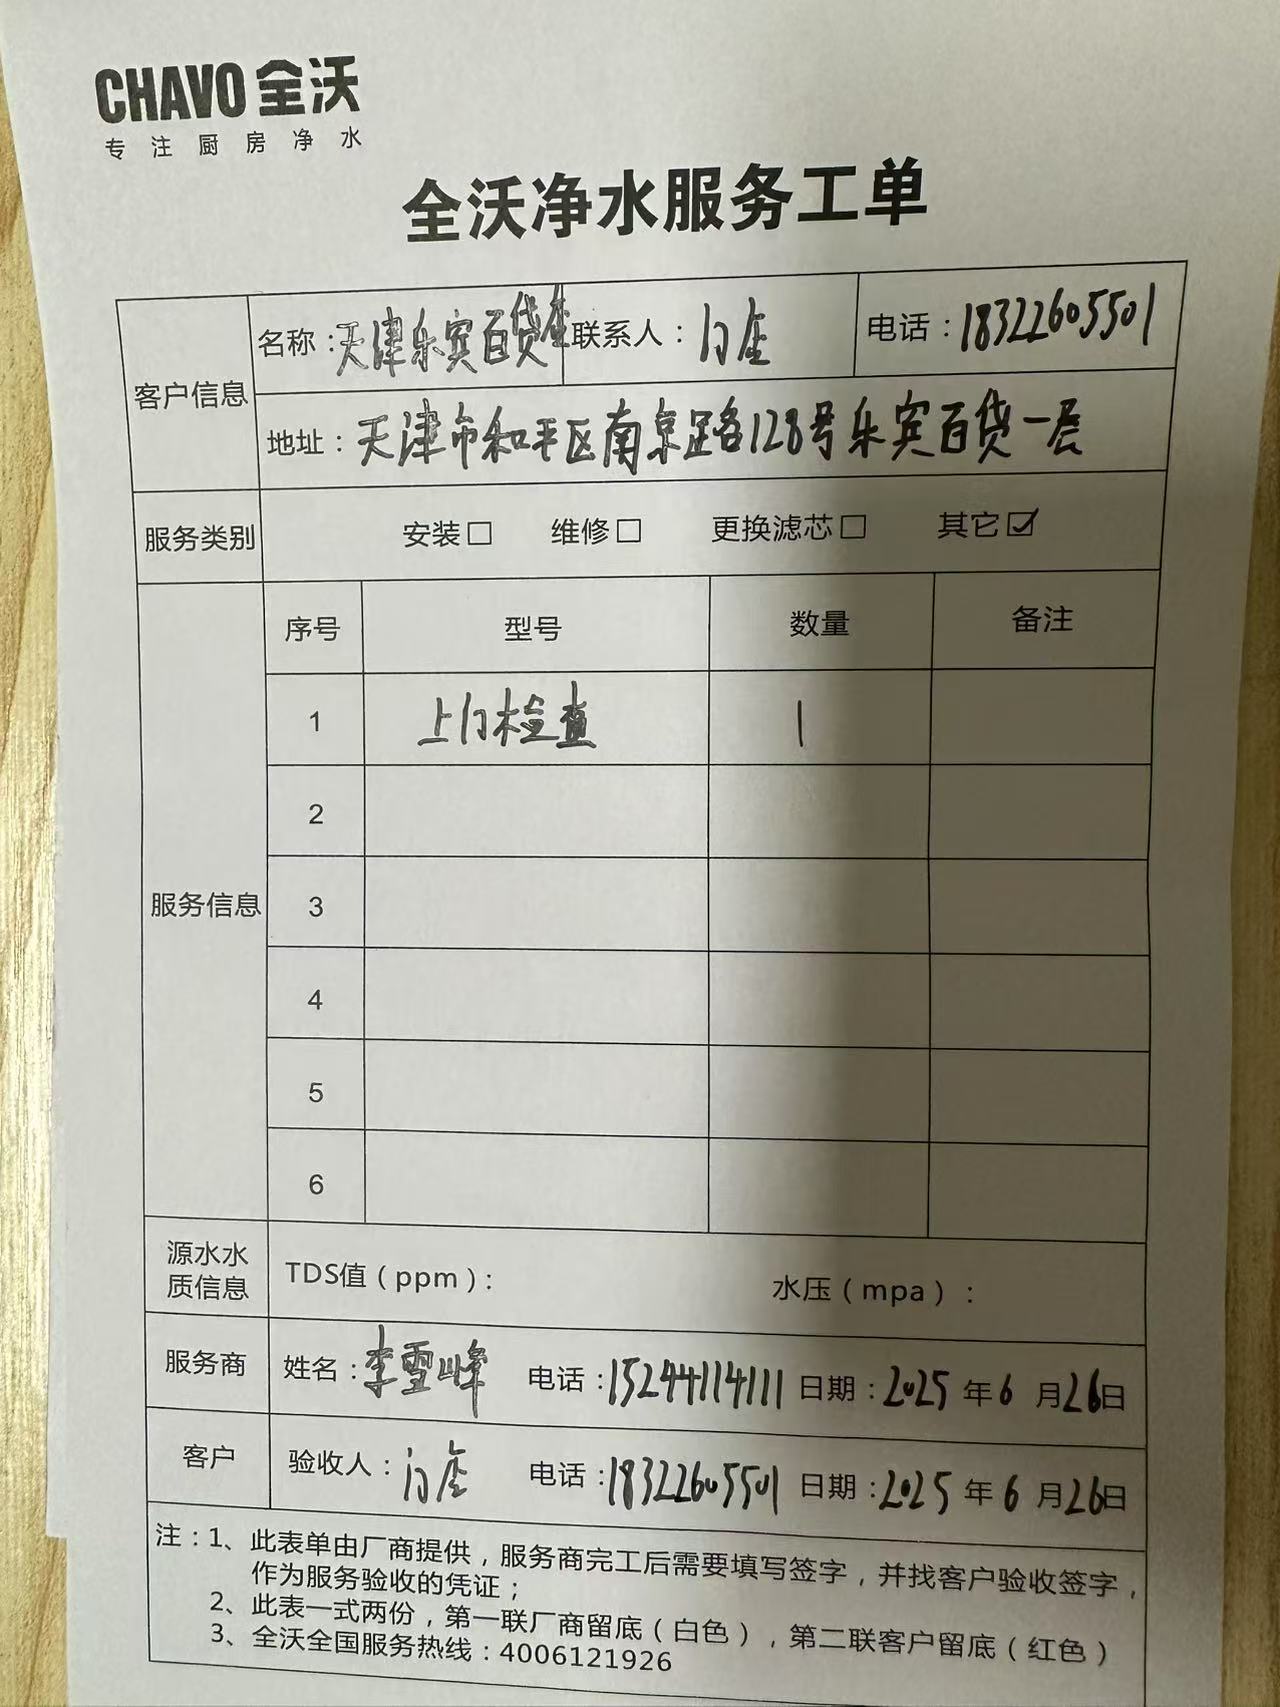 CHAVO 全沃
专注厨房净水
全沃净水服务工单
客户信息
名称：天津乐宾百货店 联系人：门店 电话：18322605501
地址：天津市和平区南京路128号乐宾百货一层
服务类别 安装☐ 维修☐ 更换滤芯☐ 其它☑
服务信息
序号 型号 数量 备注
1 上门检查 1
2
3
4
5
6
源水水质信息 TDS值（ppm）： 水压（mpa）：
服务商 姓名：李雪峰 电话：15244114111 日期：2025年6月26日
客户 验收人：门店 电话：18322605501 日期：2025年6月26日
注：1、此表单由厂商提供，服务商完工后需要填写签字，并找客户验收签字，
作为服务验收的凭证；
2、此表一式两份，第一联厂商留底（白色），第二联客户留底（红色）
3、全沃全国服务热线：4006121926